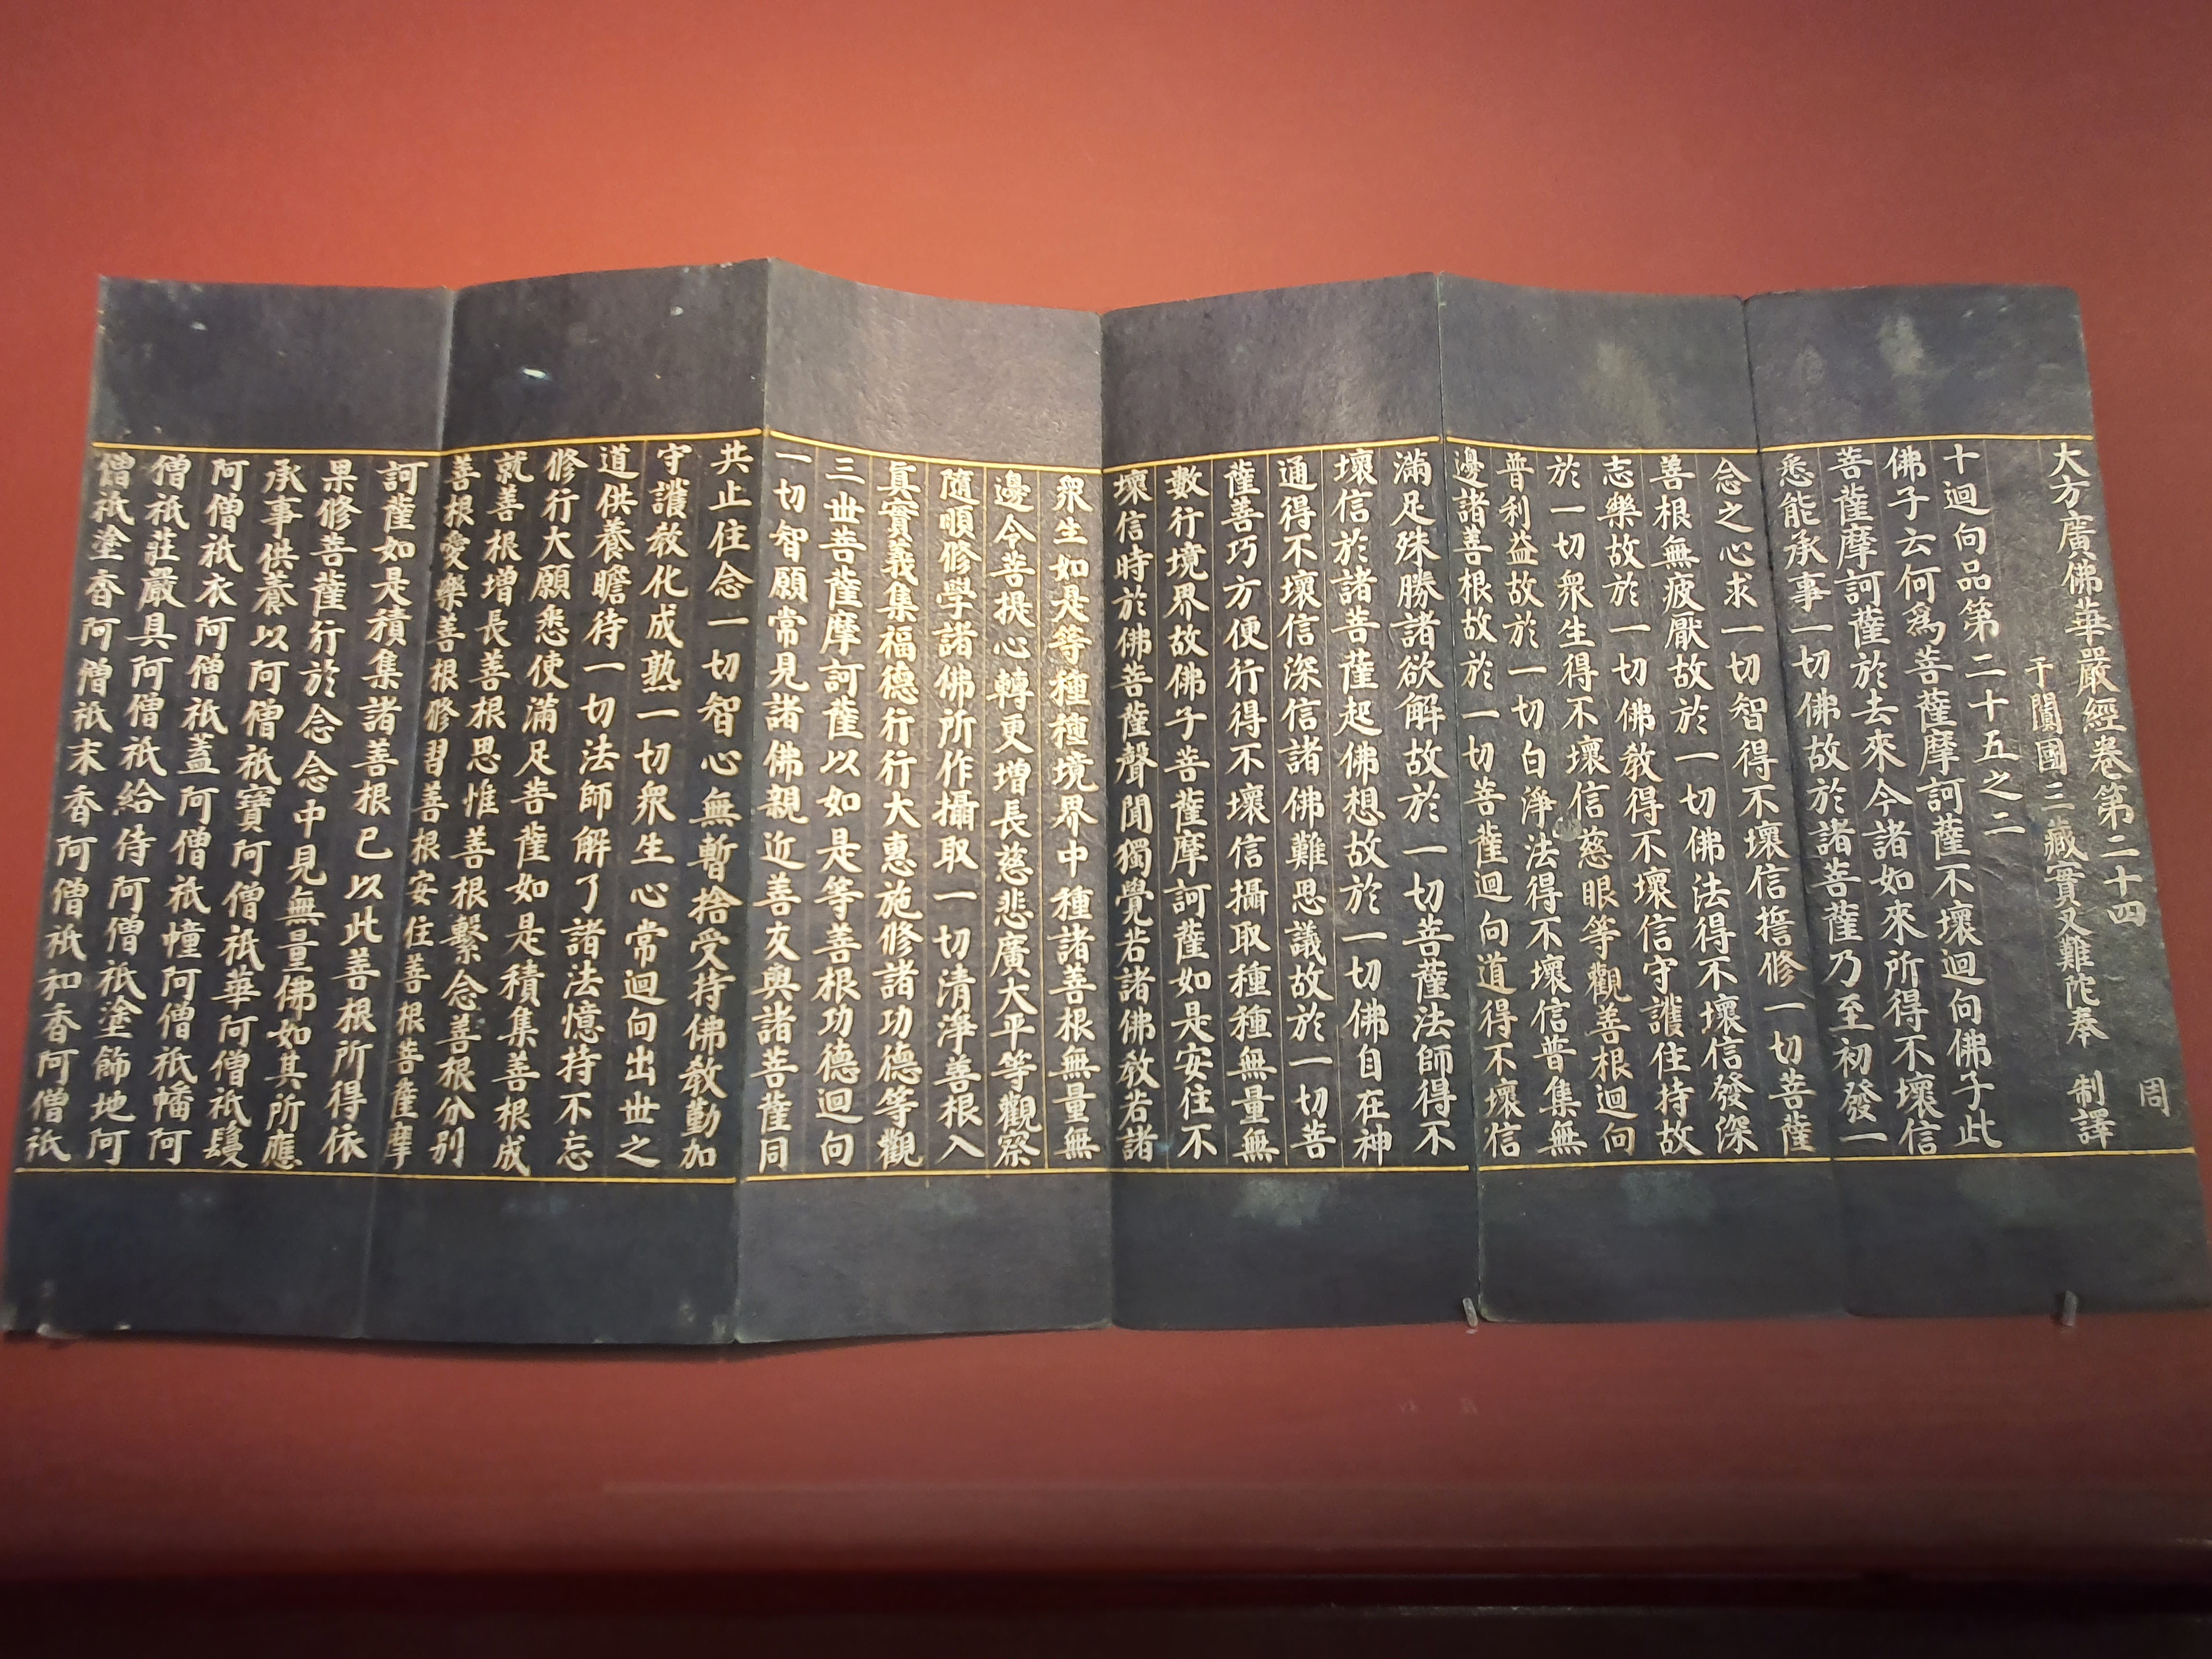 大方廣佛華嚴經卷第二十四
周
于闐國三藏實叉難陀奉 制譯
十迴向品第二十五之二
佛子云何爲菩薩摩訶薩不壞迴向佛子此
菩薩摩訶薩於去來今諸如來所得不壞信
悉能承事一切佛故於諸菩薩乃至初發一
念之心求一切智得不壞信誓修一切菩薩
善根無疲厭故於一切佛法得不壞信發深
志樂故於一切佛教得不壞信守護住持故
於一切衆生得不壞信慈眼等觀善根迴向
普利益故於一切白淨法得不壞信普集無
邊諸善根故於一切菩薩迴向道得不壞信
滿足殊勝諸欲解故於一切菩薩法師得不
壞信於諸菩薩起佛想故於一切佛自在神
通得不壞信深信諸佛難思議故於一切菩
薩善巧方便行得不壞信攝取種種無量無
數行境界故佛子菩薩摩訶薩如是安住不
壞信時於佛菩薩聲聞獨覺若諸佛教若諸
衆生如是等種種境界中種諸善根無量無
邊令菩提心轉更增長慈悲廣大平等觀察
隨順修學諸佛所作攝取一切清淨善根入
眞實義集福德行行大惠施修諸功德等觀
三世菩薩摩訶薩以如是等善根功德迴向
一切智願常見諸佛親近善友與諸菩薩同
共止住念一切智心無暫捨受持佛教勤加
守護教化成熟一切衆生心常迴向出世之
道供養瞻待一切法師解了諸法憶持不忘
修行大願悉使滿足菩薩如是積集善根成
就善根增長善根思惟善根繫念善根分別
善根愛樂善根修習善根安住善根菩薩摩
訶薩如是積集諸善根已以此善根所得依
果修菩薩行於念念中見無量佛如其所應
承事供養以阿僧祇寶阿僧祇華阿僧祇鬘
阿僧祇衣阿僧祇蓋阿僧祇幢阿僧祇幡阿
僧祇莊嚴具阿僧祇給侍阿僧祇塗飾地阿
僧祇塗香阿僧祇末香阿僧祇和香阿僧祇